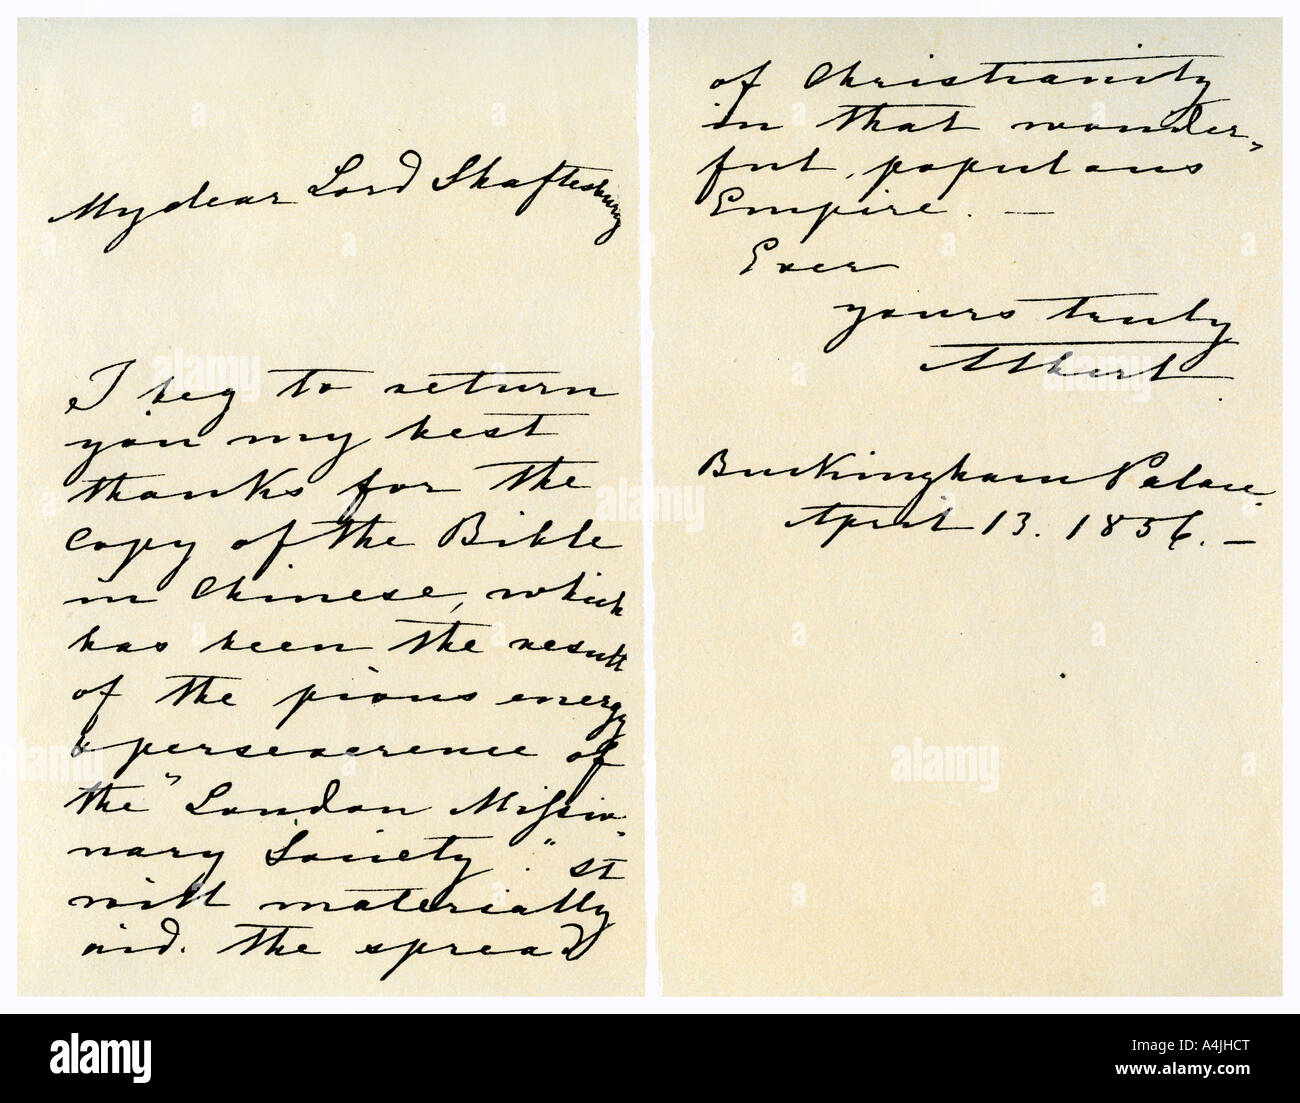 My dear Lord Shaftesbury
I beg to return
you my best
thanks for the
copy of the Bible
in Chinese, which
has been the result
of the pious energy
& perseverence of
the "London Missio-
nary Society". It
will materially
aid. the spread
of Christianity
in that wonder-
ful, populous
Empire. —
Ever
yours truly
Albert
Buckingham Palace.
April 13. 1856. —
alamy
Image ID: A4JHCT
www.alamy.com